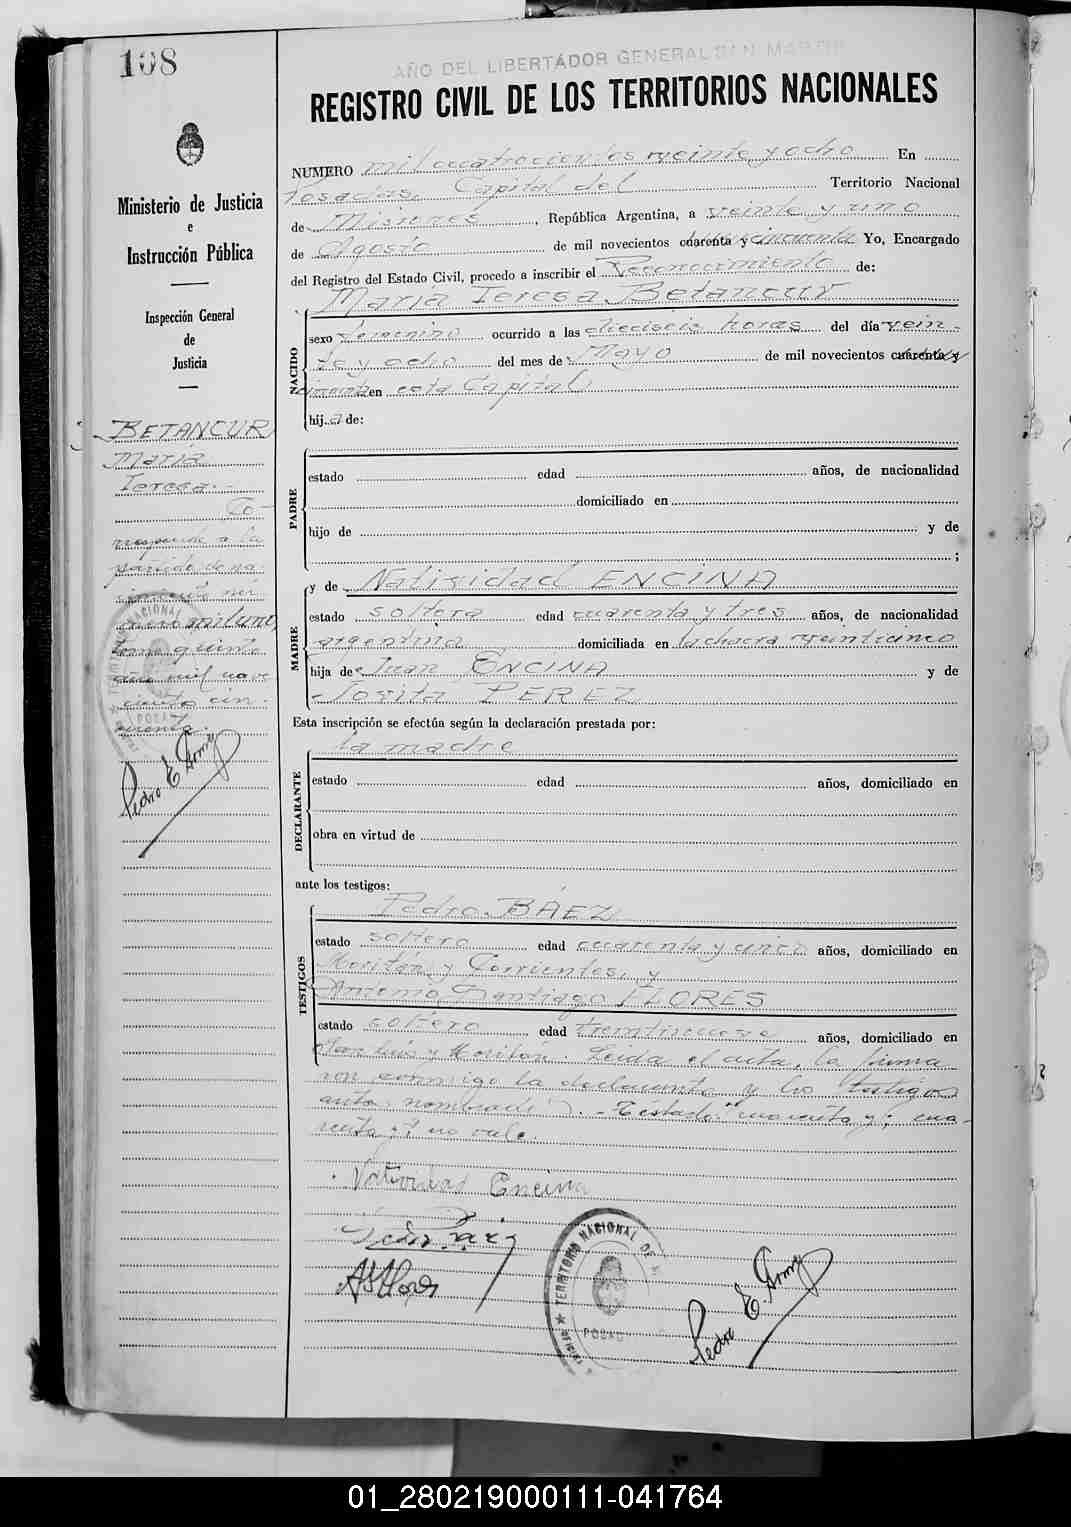 108
AÑO DEL LIBERTADOR GENERAL SAN MARTIN
REGISTRO CIVIL DE LOS TERRITORIOS NACIONALES
Ministerio de Justicia
e
Instrucción Pública
Inspección General
de
Justicia
BETANCUR
Maria
Teresa.-
Co-
rresponde a la
partida de na-
cimiento nú-
mero mil uno,
tomo quinto
año mil nove
ciento cin-
cuenta.
NUMERO mil cuatrocientos veinte y ocho En
Posadas, Capital del Territorio Nacional
de Misiones, República Argentina, a veinte y uno
de Agosto de mil novecientos cuarenta y cincuenta Yo, Encargado
del Registro del Estado Civil, procedo a inscribir el Reconocimiento de:
Maria Teresa Betancur
NACIDO
sexo femenino ocurrido a las dieciseis horas del día vein-
te y ocho del mes de Mayo de mil novecientos cuarenta y
cincuenta en esta Capital
hij a de:
PADRE
estado edad años, de nacionalidad
domiciliado en
hijo de y de
;
MADRE
y de Natividad ENCINA
estado soltera edad cuarenta y tres años, de nacionalidad
argentina domiciliada en la chacra veinticinco
hija de Juan ENCINA y de
Josita PEREZ
Esta inscripción se efectúa según la declaración prestada por:
la madre
DECLARANTE
estado edad años, domiciliado en
obra en virtud de
ante los testigos:
TESTIGOS
Pedro BÁEZ
estado soltero edad cuarenta y cinco años, domiciliado en
Moritán y Corrientes, y
Antonio Santiago FLORES
estado soltero edad treintinueve años, domiciliado en
San Luis y Moritán. Leida el acta, la firma
ron conmigo la declarante y los testigos
antes nombrados.- Testado: "cuarenta y"; cua-
renta y" no vale.
Natividad Encina
Pedro Baez
ASFlores
TERRITORIO NACIONAL DE
POSAD
Pedro E.
Pedro E.
01_280219000111-041764